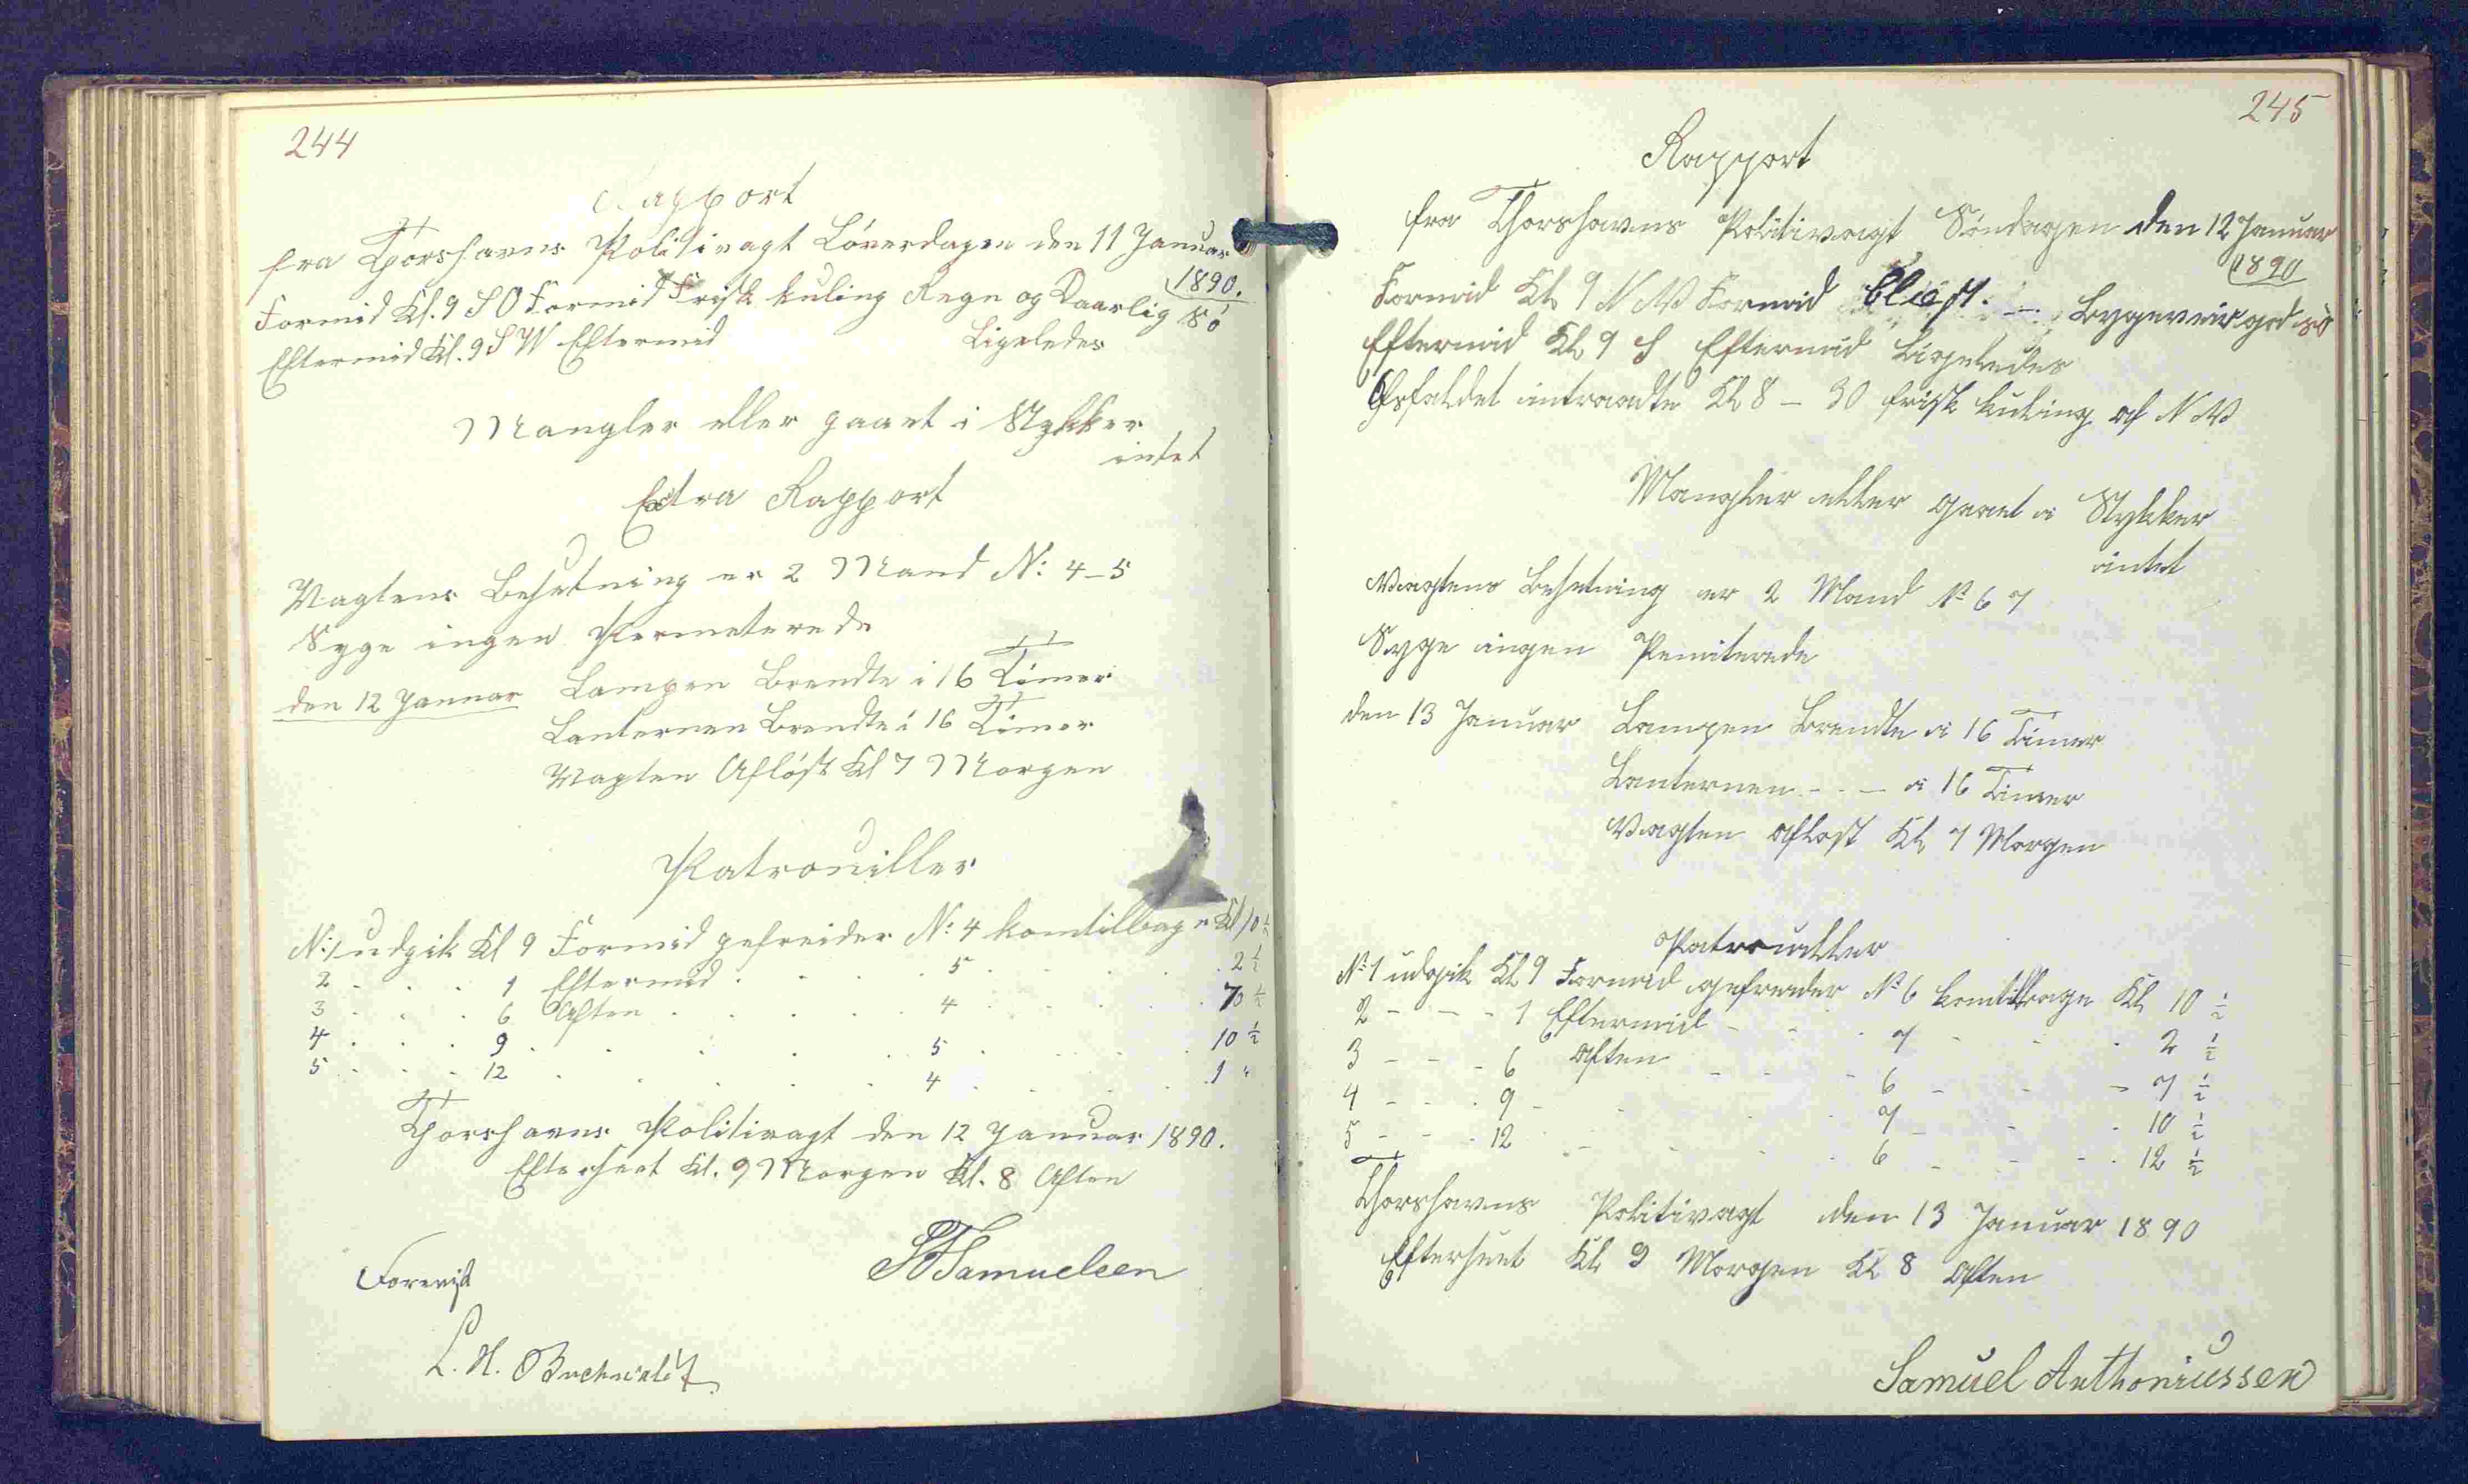 244
Rapport
fra Thorshavns Politivagt Löverdagen den 11 Januar
1890.
Formid Kl. 9 S O Formid Frisk kuling Regn og Daarlig Sö
Eftermid Kl. 9 S W Eftermid Ligeledes
Mangler eller gaaet i Stykker
intet
Extra Rapport
Vagtens Besetning er 2 Mand N: 4-5
Syge ingen Permeterede
den 12 Januar Lampen Brendte i 16 Timer
Lanternen Brendte i 16 Timer
Vagten Aflöst Kl 7 Morgen
Patrouiller
N: 1 udgik Kl 9 Formid gefreider N: 4 kom tilbage Kl 10 ½
2 . . . 1 Eftermid . . . 5 . . . 2 ½
3 . . . 6 Aften . . . 4 . . . 7 ½
4 . . . 9 . . . 5 . . . 10 ½
5 . . . 12 . . . 4 . . . 1 "
Thorshavns Politivagt den 12 Januar 1890.
Efterseet Kl. 9 Morgen Kl. 8 Aften
Samuelsen
Forevist
L. H.
245
Rapport
fra Thorshavns Politivagt Söndagen den 12 Januar
1890
Formid Kl 9 N W Formid blæst. - Bygeveir god sö
Eftermid Kl 9 S Eftermid Ligeledes
Isfaldet intraadte Kl 8 - 30 frisk kuling af N W
Mangler eller gaaet i Stykker
intet
Vagtens Besetning er 2 Mand No 6 7
Syge ingen Pemiterede
den 13 Januar Lampen Brendte i 16 Timer
Lanternen - - - i 16 Timer
Vagten aflöst Kl 7 Morgen
Patrouiller
No 1 udgik Kl 9 Formid gefreider No 6 kom tilbage Kl 10 ½
2 - - - 1 Eftermid - - - 7 - - - 2 ½
3 - - - 6 Aften - - - 6 - - - 7 ½
4 - - - 9 - - - 7 - - - 10 ½
5 - - - 12 - - - 6 - - - 12 ½
Thorshavns Politivagt den 13 Januar 1890
Efterseet Kl 9 Morgen Kl 8 Aften
Samuel Anthoniussen